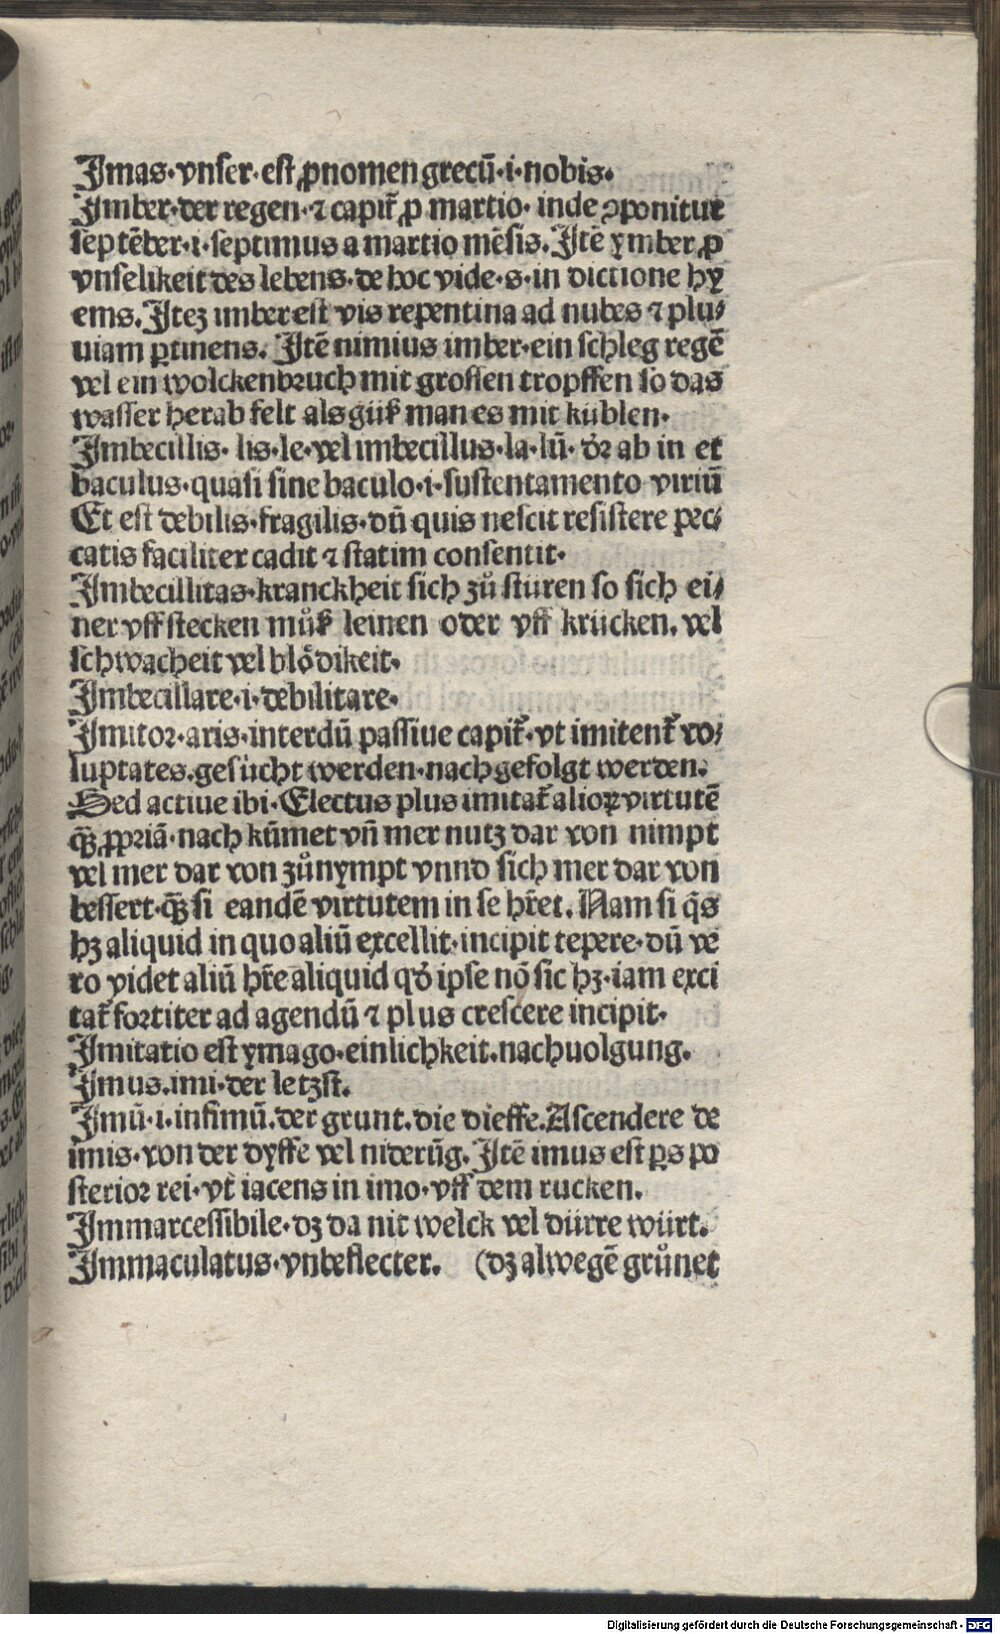 Jmas·vnser·est ꝓnomen grecū·i·nobis·
Jmber·der regen·⁊ capit᷑ ꝓ martio·inde ꝯponitur
septēber·i·septimus a martio mēsis. Jtē ymber ꝓ
vnselikeit des lebens·de hoc vide·s·in dictione hy
ems. Jteꝫ imber est vis repentina ad nubes ⁊ plu⸗
uiam ꝑtinens. Jtē nimius imber·ein schleg regē
vel ein wolckenbruch mit grossen tropffen so das
wasser herab felt als güß man es mit küblen·
Jmbecillis·lis·le·vel imbecillus·la·lū·dꝛ ab in et
baculus·quasi sine baculo·i·sustentamento viriū
Et est debilis·fragilis·dū quis nescit resistere pec⸗
catis faciliter cadit ⁊ statim consentit·
Jmbecillitas·kranckheit sich zů stüren so sich ei⸗
ner vff stecken můß leinen oder vff krücken. vel
schwacheit vel blödikeit·
Jmbecillare·i·debilitare·
Jmitoꝛ·aris·interdū passiue capit᷑·vt imitent᷑ vo⸗
luptates.gesücht werden·nachgefolgt werden.
Sed actiue ibi·Electus plus imitat᷑ alioꝝ virtutē
qꝫ̄ ꝓpꝛiā·nach kūmet vn̄ mer nutz dar von nimpt
vel mer dar von zůnympt vnnd sich mer dar von
bessert·qꝫ̄ si eandē virtutem in se hr̄et. Nam si q̄s
hꝫ aliquid in quo aliū excellit·incipit tepere·dū ve
ro videt aliū hr̄e aliquid qd̓ ipse nō sic hꝫ·iam exci
tat᷑ foꝛtiter ad agendū ⁊ plus crescere incipit·
Jmitatio est ymago·einlichkeit.nachuolgung.
Jmus.imi·der letzst.
Jmū·i·infimū.der grunt.die dieffe.Ascendere de
imis·von der dyffe vel niderūg. Jtē imus est ꝑs po
sterioꝛ rei·vt iacens in imo·vff dem rucken.
Jmmarcessibile·dꝫ da nit welck vel dürre würt.
Jmmaculatus·vnbeflecter. (dꝫ alwegē grůnet
Digitalisierung gefördert durch die Deutsche Forschungsgemeinschaft - DFG